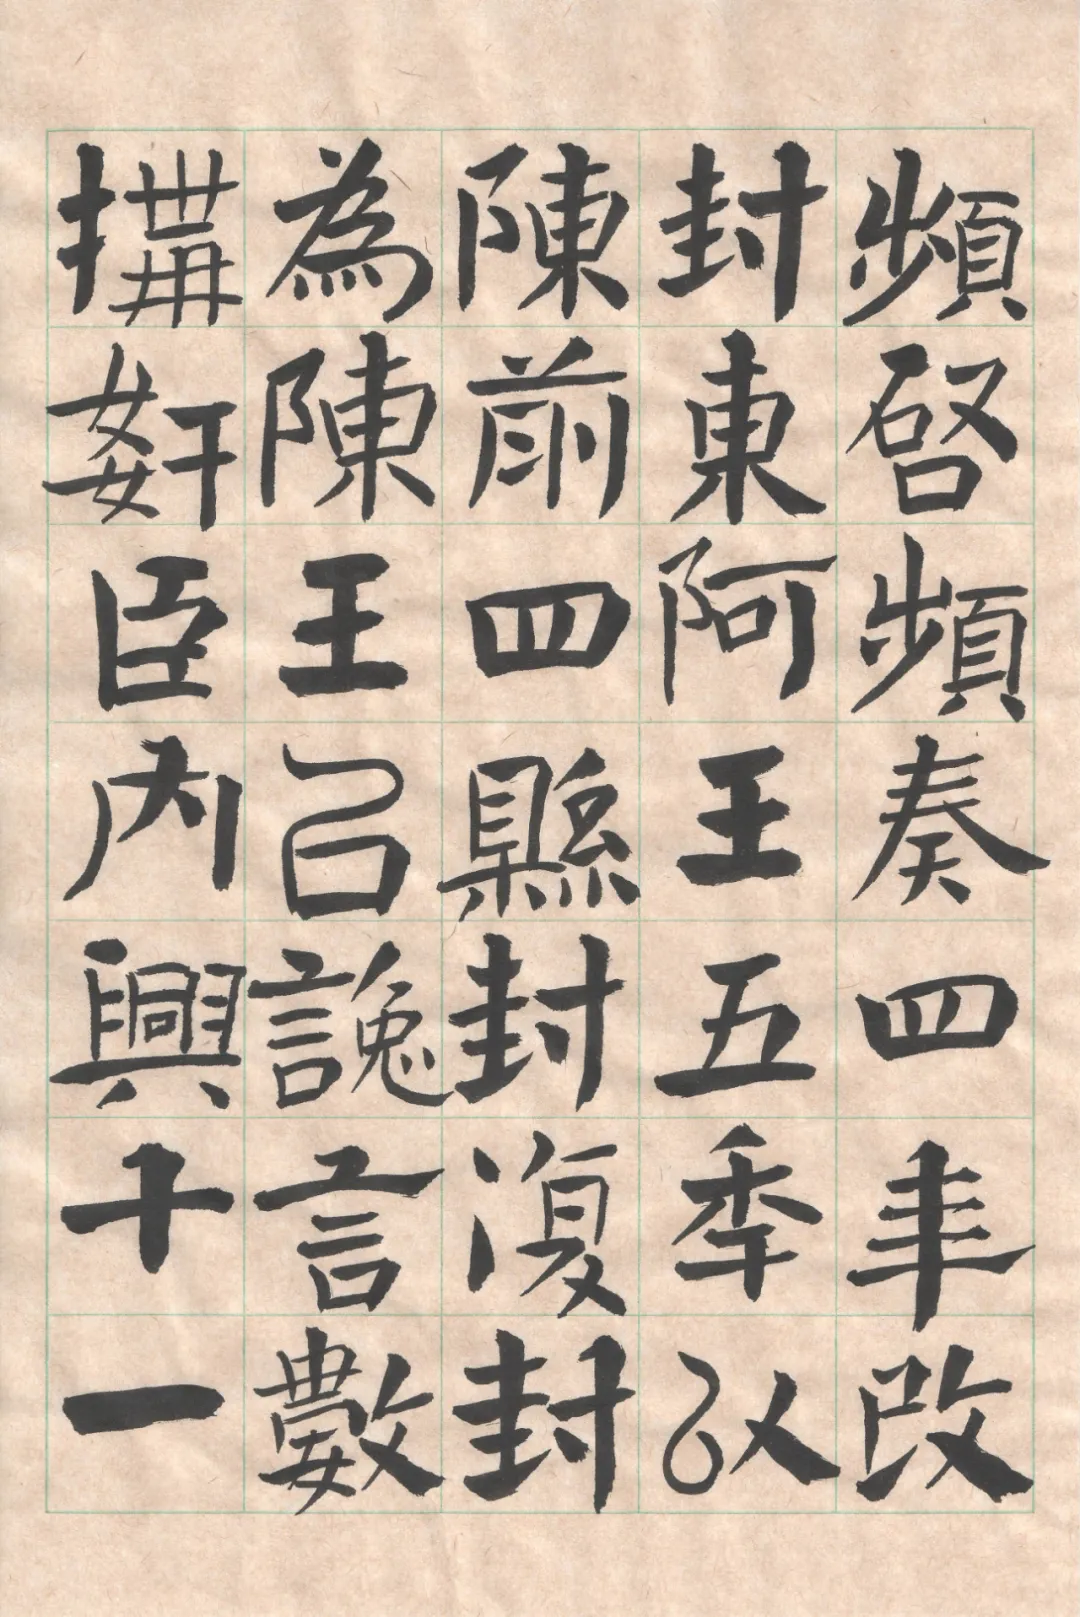 頻啓頻奏四年改
封東阿王五秊以
陳前四縣封復封
為陳王㠯讒言數
搆姧臣內興十一